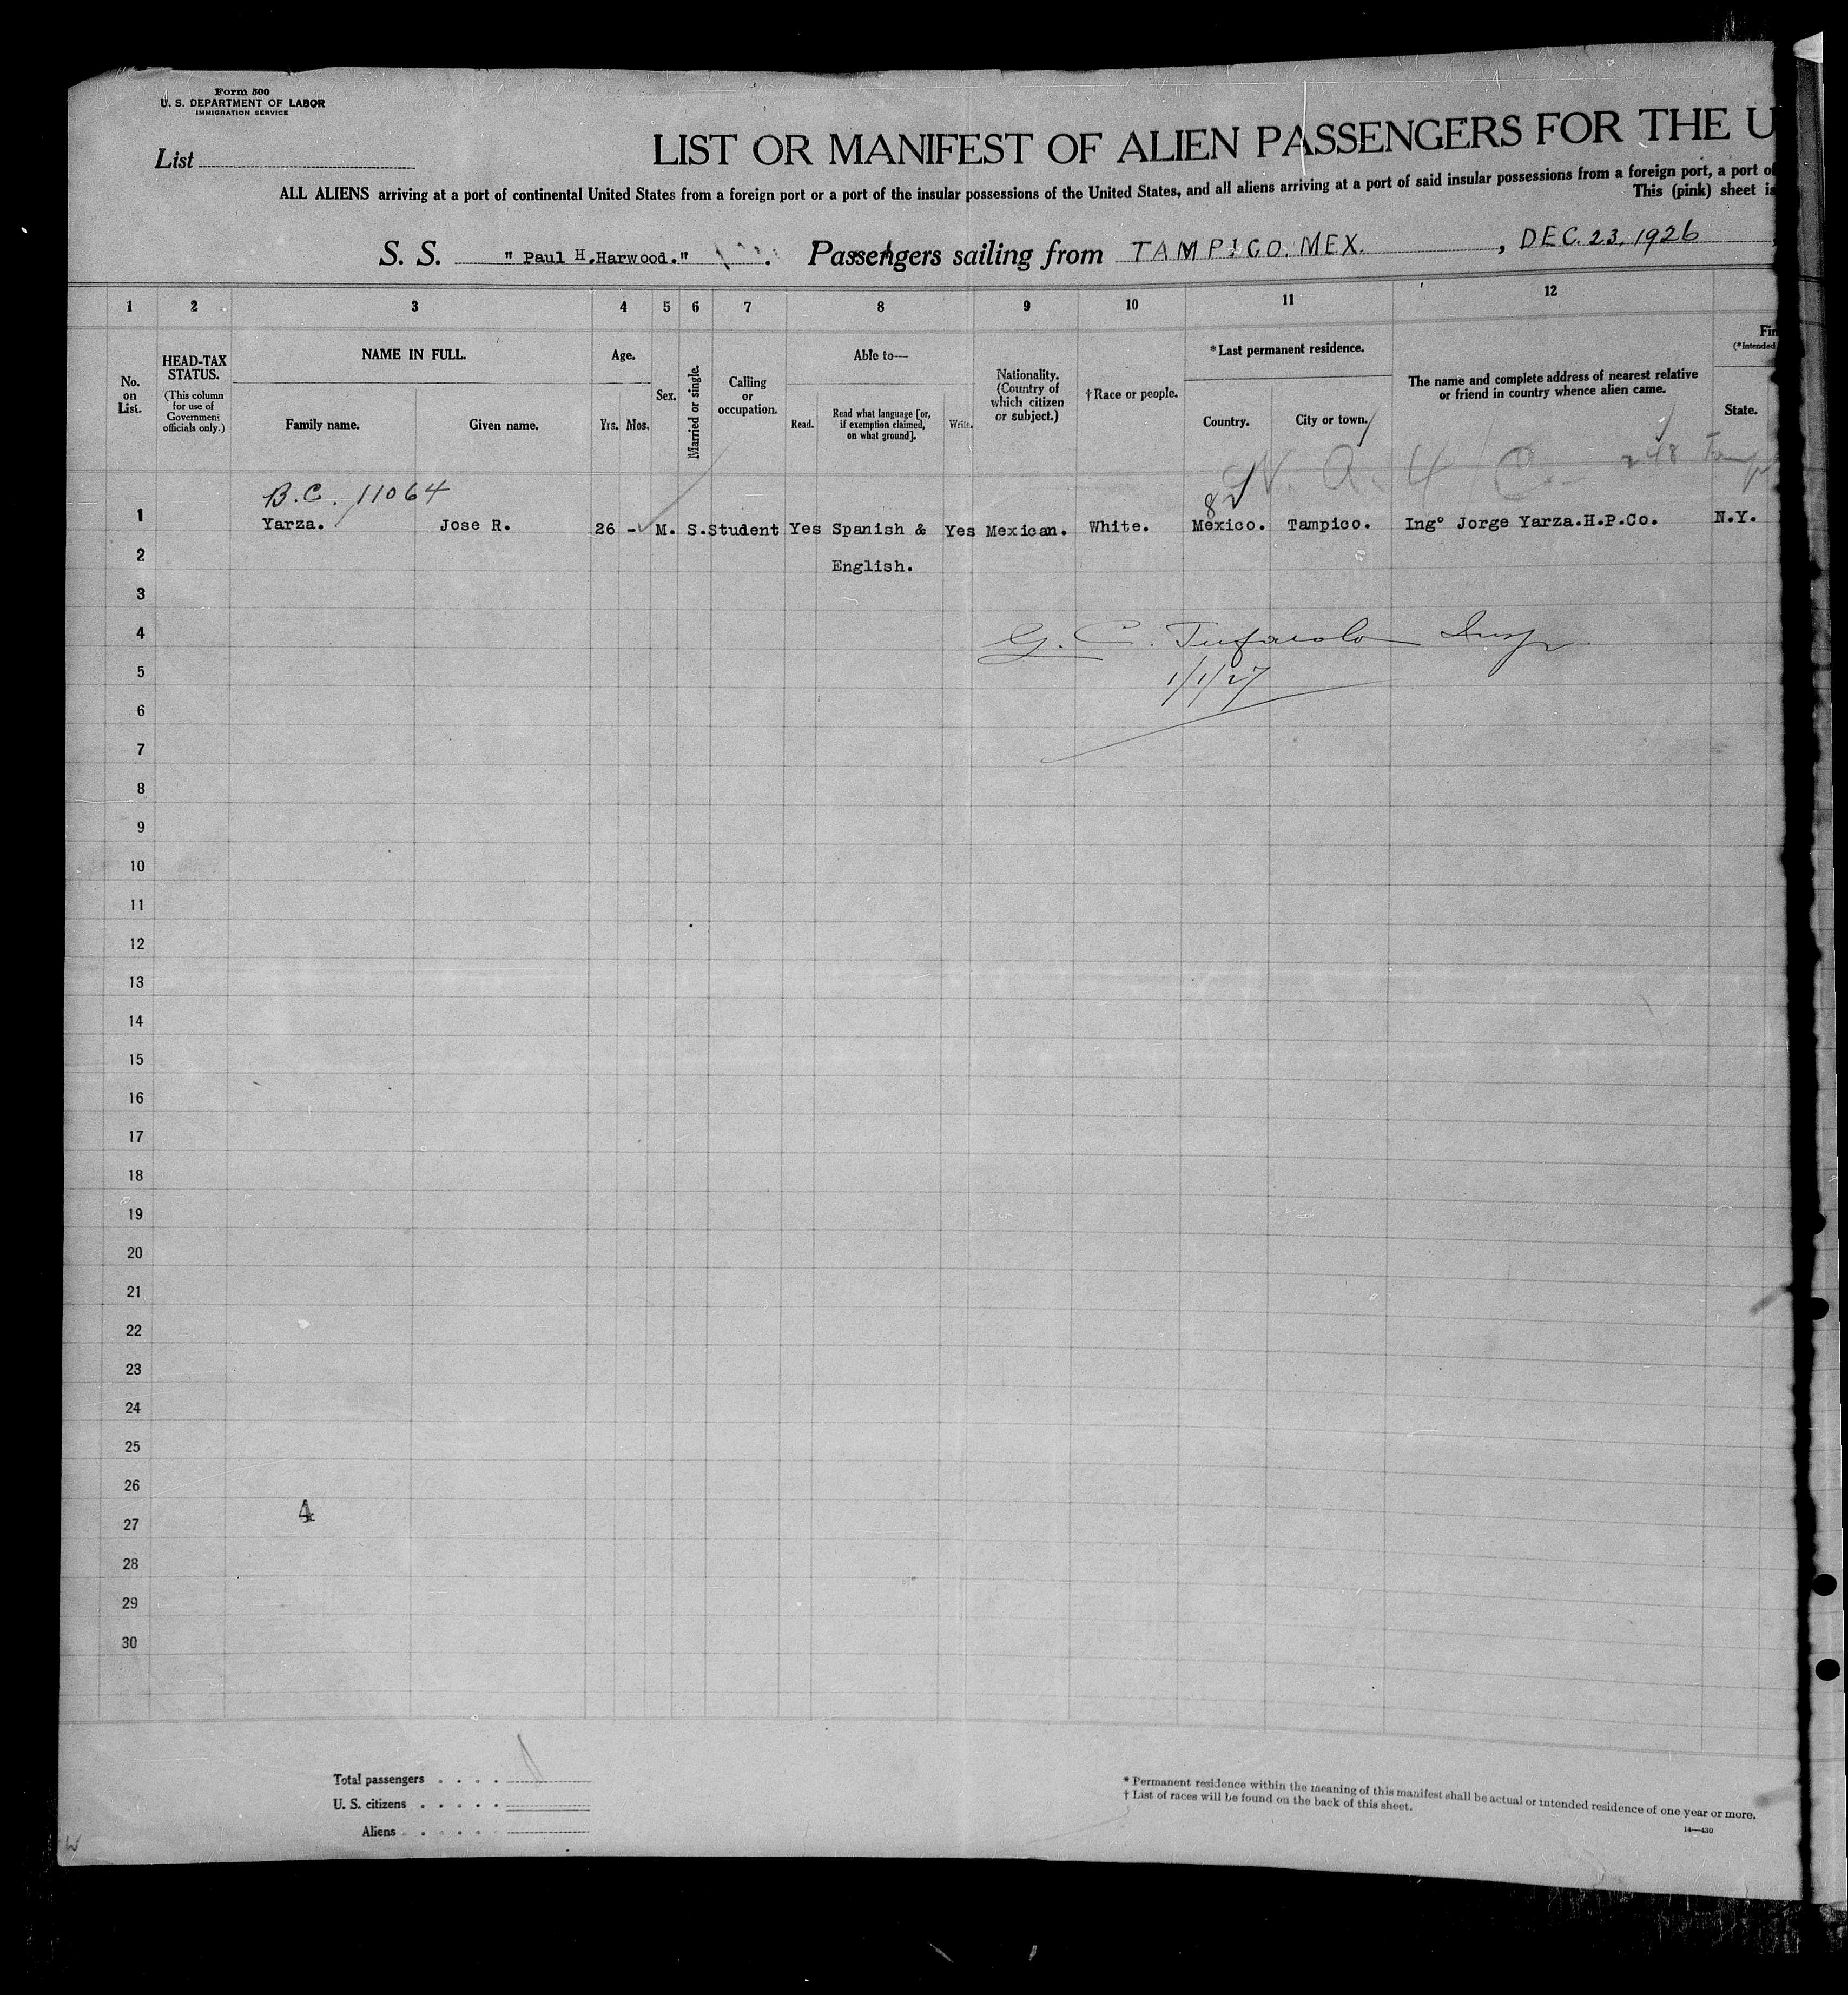 Form 500
U. S. DEPARTMENT OF LABOR
IMMIGRATION SERVICE
List
LIST OR MANIFEST OF ALIEN PASSENGERS FOR THE U
ALL ALIENS arriving at a port of continental United States from a foreign port or a port of the insular possessions of the United States, and all aliens arriving at a port of said insular possessions from a foreign port, a port of
This (pink) sheet is
S. S. "Paul H.Harwood." Passengers sailing from TAMPICO. MEX., DEC. 23, 1926
1 2 3 4 5 6 7 8 9 10 11 12
No. on List.
HEAD-TAX STATUS.
(This column for use of Government officials only.)
NAME IN FULL.
Family name. Given name.
Age.
Yrs. Mos.
Sex.
Married or single.
Calling or occupation.
Able to—
Read. Read what language [or, if exemption claimed, on what ground]. Write.
Nationality. (Country of which citizen or subject.)
†Race or people.
*Last permanent residence.
Country. City or town.
The name and complete address of nearest relative or friend in country whence alien came.
Fin
(*Intended
State.
B.C. 11064
1 Yarza. Jose R. 26 - M. S. Student Yes Spanish & Yes Mexican. White. Mexico. Tampico. Ingº Jorge Yarza.H.P.Co. N.Y.
2 English.
3
4
5 1/1/27
6
7
8
9
10
11
12
13
14
15
16
17
18
19
20
21
22
23
24
25
26
4
27
28
29
30
Total passengers
U. S. citizens
Aliens
* Permanent residence within the meaning of this manifest shall be actual or intended residence of one year or more.
† List of races will be found on the back of this sheet.
14—430